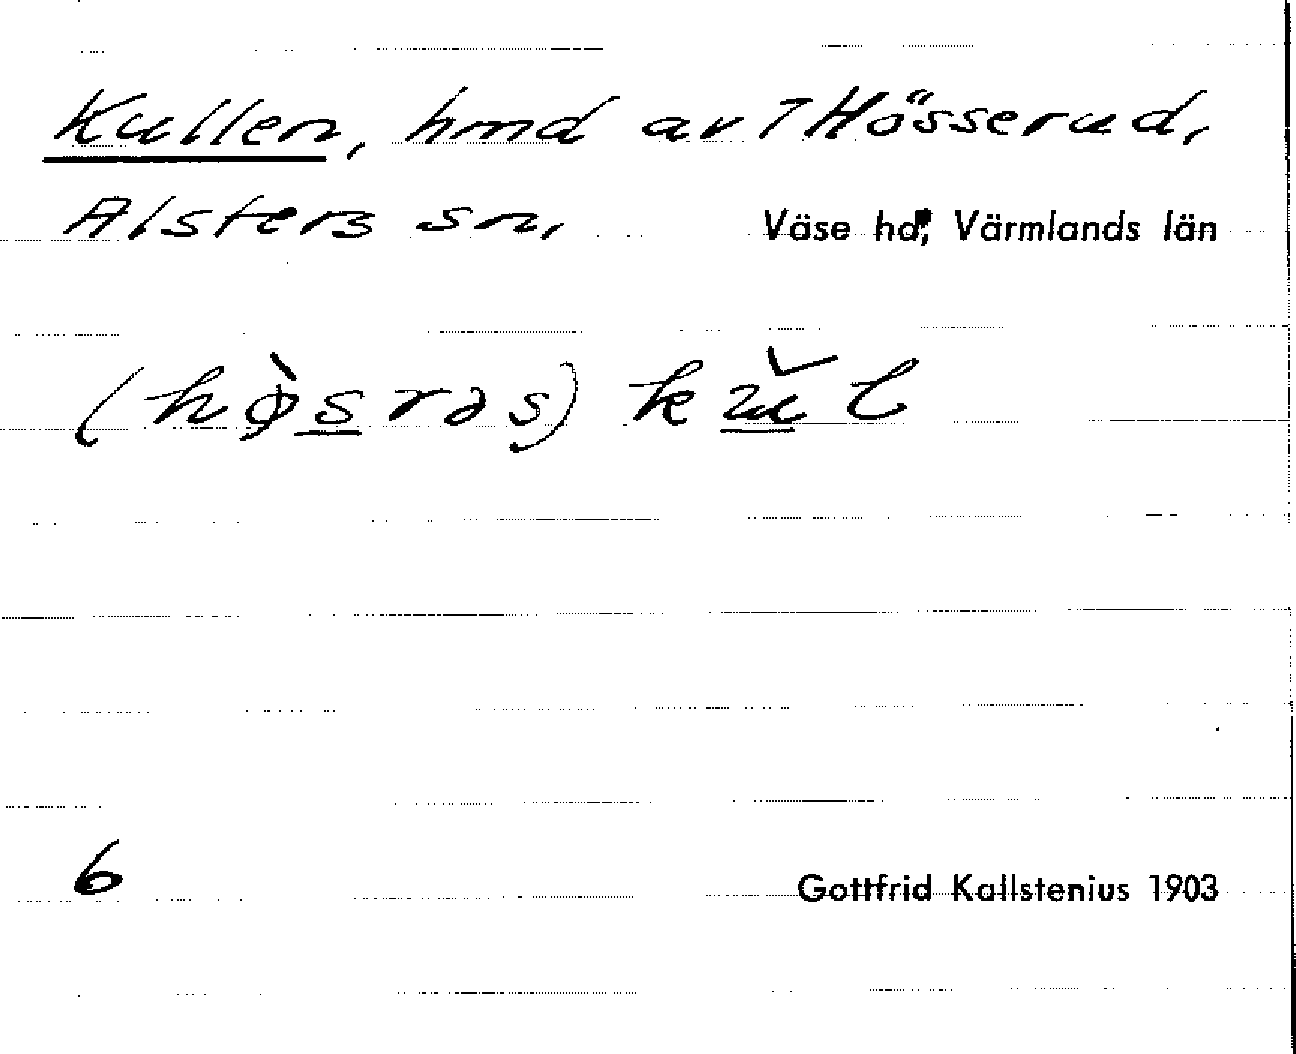 Kullen, hmd av 7 Hösserud,
Alsters sn, Väse hd, Värmlands län
(hø̀s̲rəs) ku̲l
6 Gottfrid Kallstenius 1903